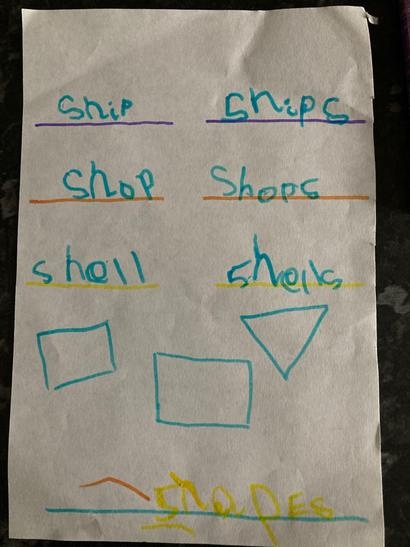 ship ships
shop shops
shell shells
shapes